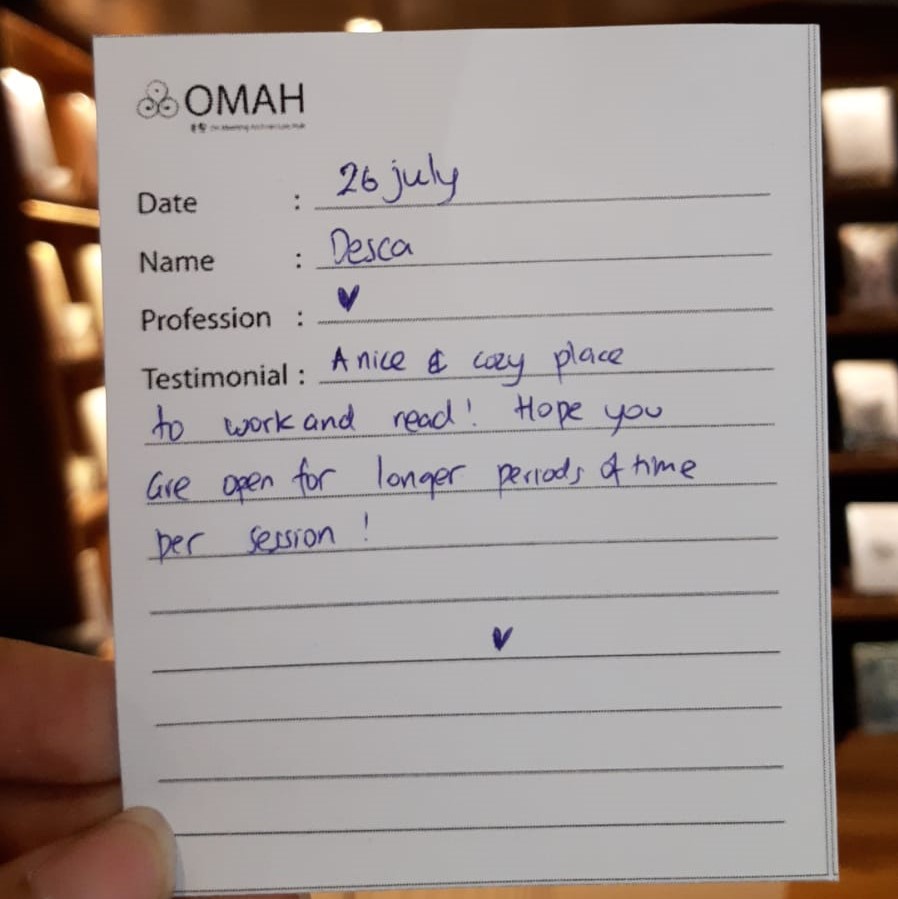 OMAH
Date : 26 july
Name : Desca
Profession : ♥
Testimonial : A nice & cozy place
to work and read! Hope you
are open for longer periods of time
per session !
♥